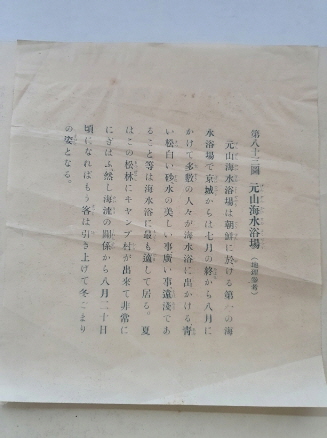 第八十三圖 元山海水浴場（地理參看）
元山海水浴場は朝鮮に於ける第一の海
水浴場で京城からは七月の終から八月に
かけて多數の人々が海水浴に出かける靑
い松白い砂水の美しい事廣い事遠淺であ
ること等は海水浴に最も適して居る。夏
はこの松林にキヤンプ村が出來て非常に
にぎはふ然し海流の關係から八月二十日
頃になればもう客は引き上げて冬ごまり
の姿となる。